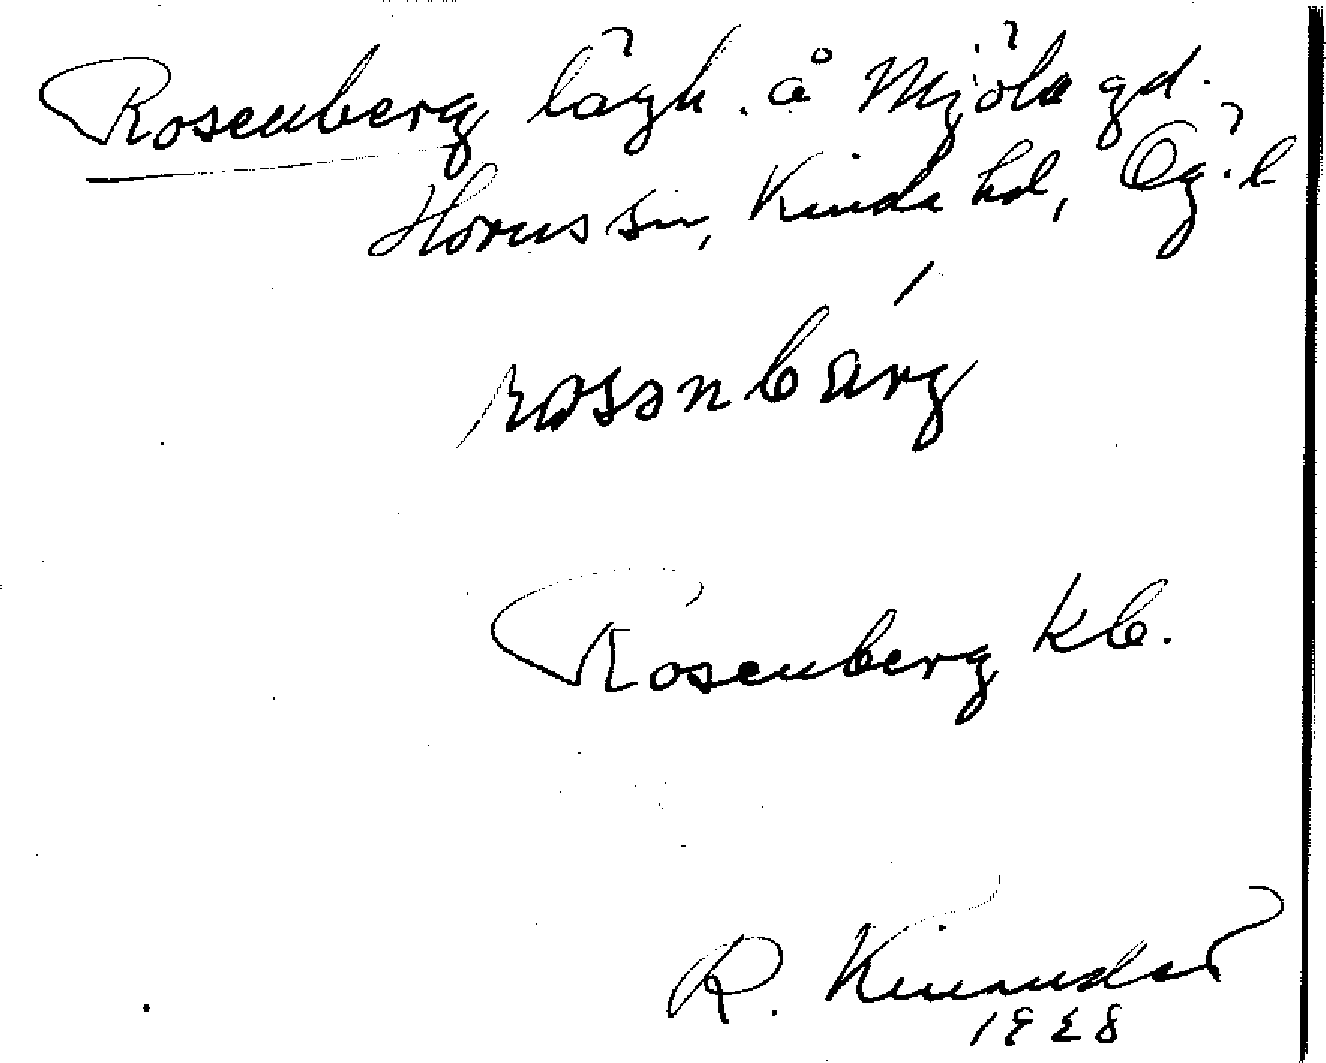 Rosenberg lägh. å Mjöla gd.
Horns sn, Kinda hd, Ög. l
rosənbärg
Rosenberg kb.
R. Kinander
1928